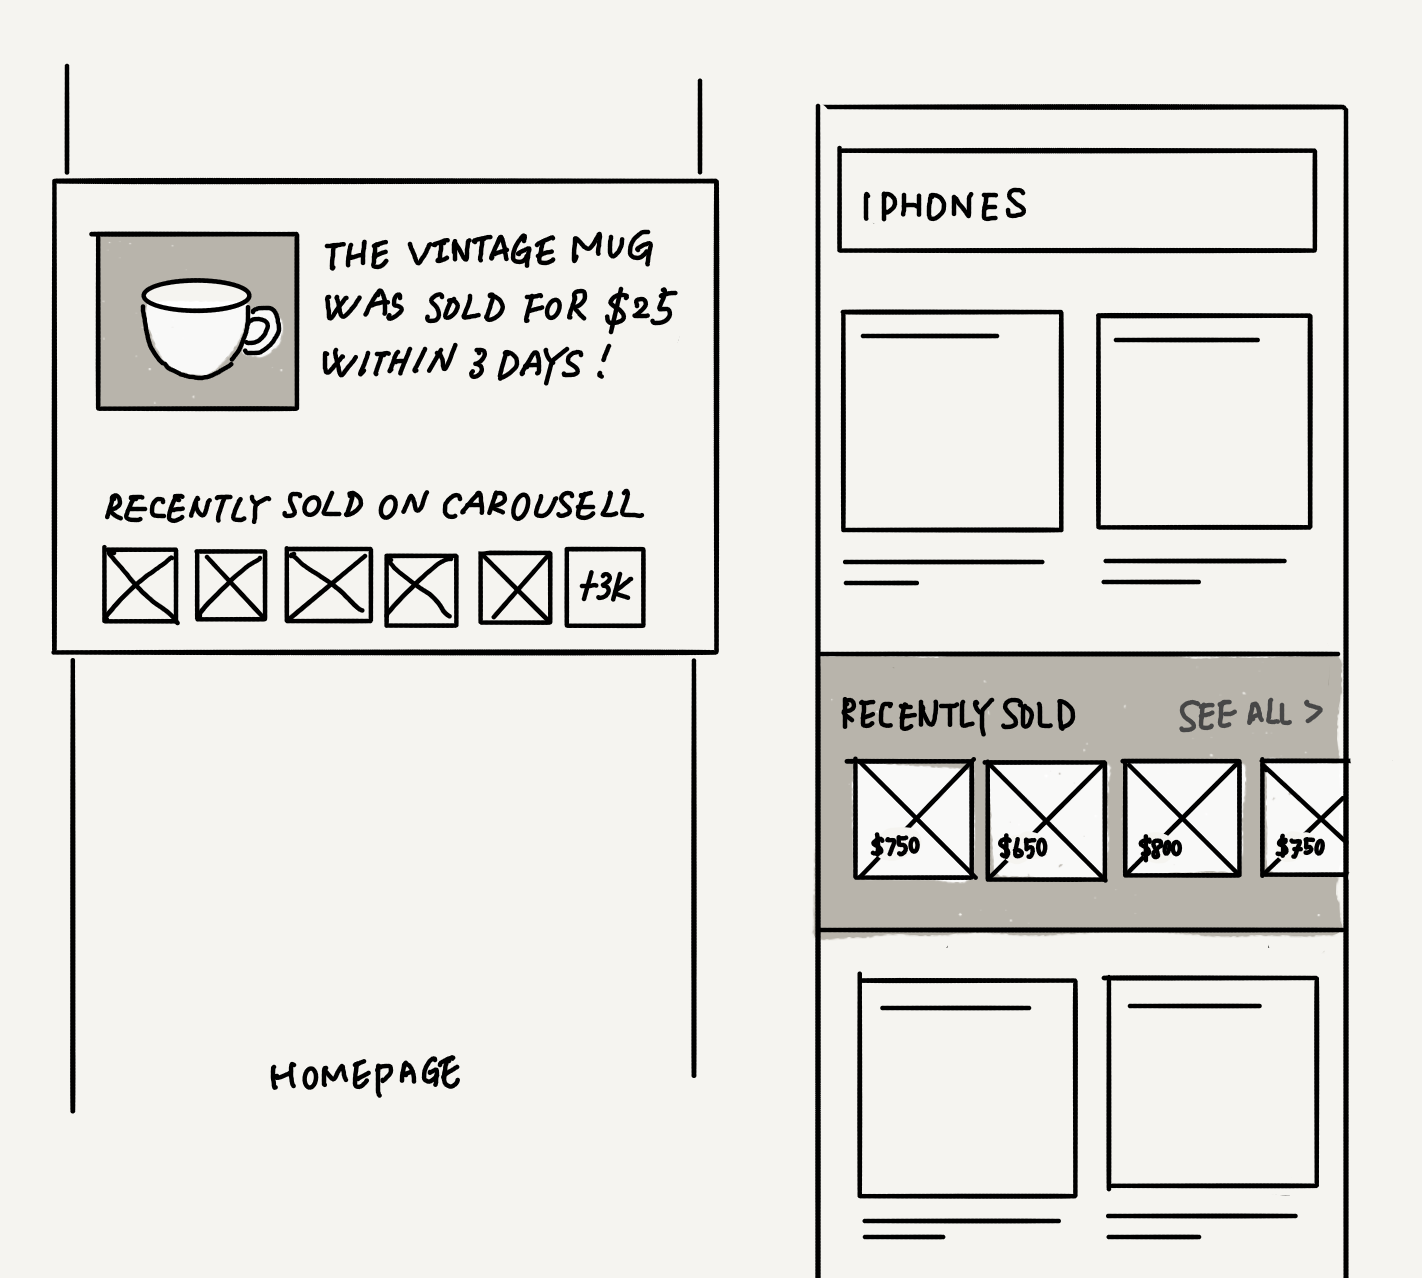 THE VINTAGE MUG
WAS SOLD FOR $25
WITHIN 3 DAYS !
RECENTLY SOLD ON CAROUSELL
+3K
HOMEPAGE
IPHONES
RECENTLY SOLD SEE ALL >
$750 $650 $800 $750